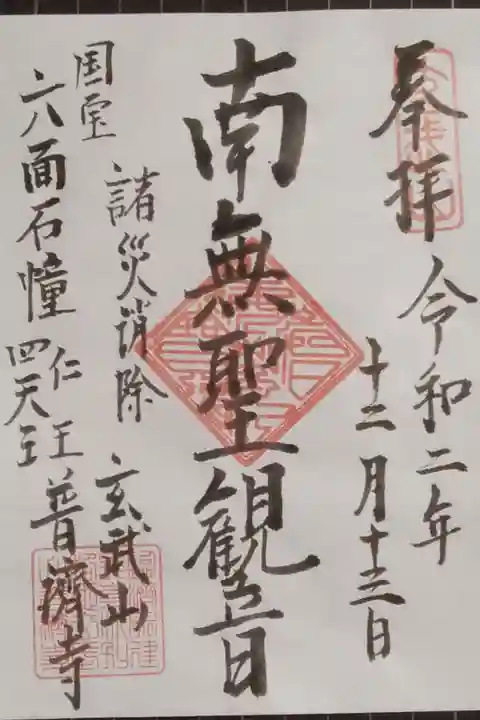 奉拝
令和二年
十二月十三日
南無聖観音
諸災消除
国宝
六八面石幢
仁王
四天王
玄武山
普濟寺